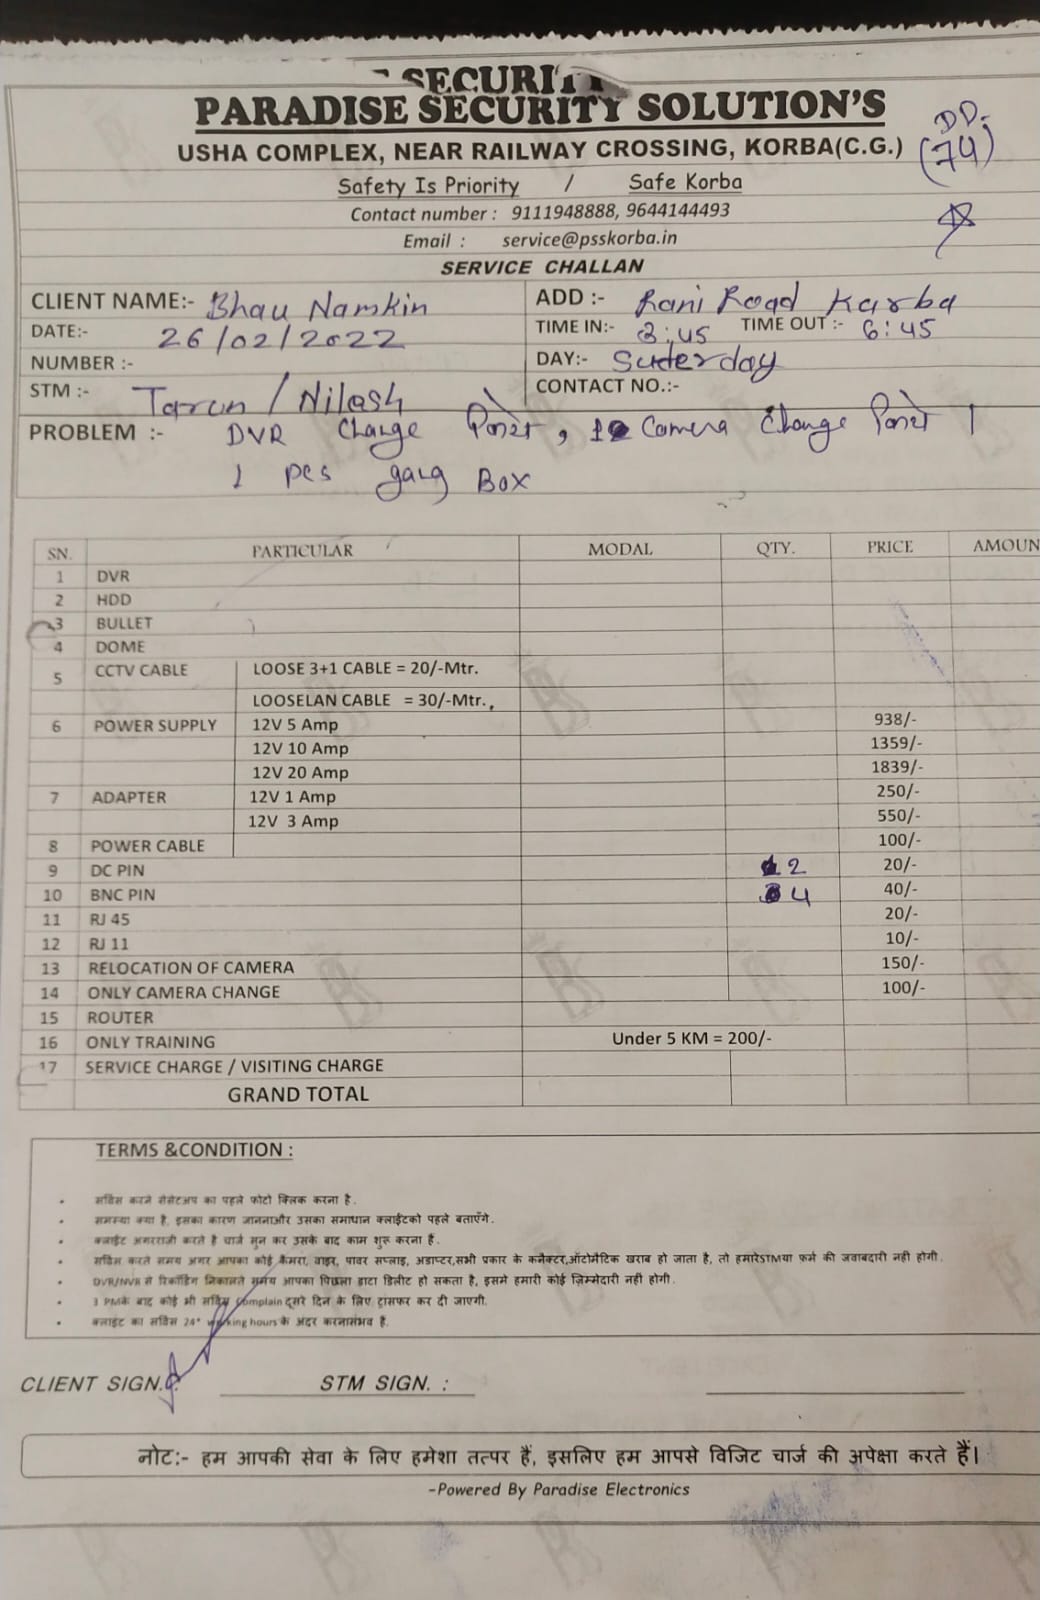 SECURITY
PARADISE SECURITY SOLUTION'S
USHA COMPLEX, NEAR RAILWAY CROSSING, KORBA(C.G.)
DD.
(74)
Safety Is Priority / Safe Korba
Contact number : 9111948888, 9644144493
Email : service@psskorba.in
SERVICE CHALLAN
CLIENT NAME:- Bhau Namkin ADD :- Rani Road Karba
DATE:- 26/02/2022 TIME IN:- 3:45 TIME OUT :- 6:45
NUMBER :- DAY:- Suterday
STM :- Tarun / Nilesh CONTACT NO.:-
PROBLEM :- DVR change किये, 1 Camera change किये ।
1 pcs gang Box
SN. PARTICULAR MODAL QTY. PRICE AMOUN
1 DVR
2 HDD
3 BULLET
4 DOME
5 CCTV CABLE LOOSE 3+1 CABLE = 20/-Mtr.
LOOSELAN CABLE = 30/-Mtr.,
6 POWER SUPPLY 12V 5 Amp 938/-
12V 10 Amp 1359/-
12V 20 Amp 1839/-
7 ADAPTER 12V 1 Amp 250/-
12V 3 Amp 550/-
8 POWER CABLE 100/-
9 DC PIN 2 20/-
10 BNC PIN 4 40/-
11 RJ 45 20/-
12 RJ 11 10/-
13 RELOCATION OF CAMERA 150/-
14 ONLY CAMERA CHANGE 100/-
15 ROUTER
16 ONLY TRAINING Under 5 KM = 200/-
17 SERVICE CHARGE / VISITING CHARGE
GRAND TOTAL
TERMS &CONDITION :
• सर्विस करने सेसेटअप का पहले फोटो क्लिक करना है.
• समस्या क्या है, इसका कारण जाननाऔर उसका समाधान क्लाईंटको पहले बताएँगे.
• क्लाईंट अगरराजी करते है चार्ज सुन कर उसके बाद काम शुरू करना हैं.
• सर्विस करते समय अगर आपका कोई कैमरा, वाइर, पावर सप्लाइ, अडाप्टर,सभी प्रकार के कनैक्टर,ऑटोमैटिक खराब हो जाता है, तो हमारेSTMया फर्म की जवाबदारी नही होगी.
• DVR/NVR से रिकॉर्डिंग निकालते समय आपका पिछला डाटा डिलीट हो सकता है, इसमे हमारी कोई ज़िम्मेदारी नही होगी.
• 3 PMके बाद कोई भी सर्विस Complain दूसरे दिन के लिए ट्रांसफर कर दी जाएगी.
• क्लाइंट का सर्विस 24* working hours के अंदर करनासंभव है.
CLIENT SIGN. : STM SIGN. :
नोट:- हम आपकी सेवा के लिए हमेशा तत्पर हैं, इसलिए हम आपसे विजिट चार्ज की अपेक्षा करते हैं।
-Powered By Paradise Electronics